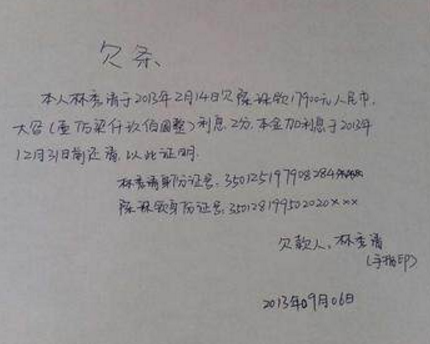 欠条
本人林秀清于2013年2月14日欠陈 钦17900元人民币,
大写(壹万柒仟玖佰圆整)利息.2分.本金加利息于2013年
12月31日前还清.以此证明.
林秀清身份证号:350125197908284
陈 钦身份证号:350128199502020×××
欠款人:林秀清
(手指印)
2013年09月06日